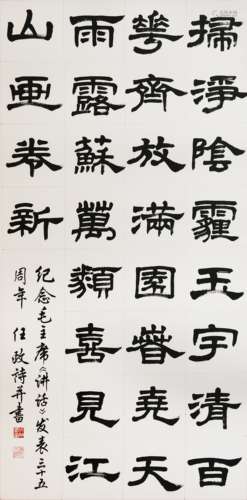 掃淨陰霾玉宇清百
華齊放滿園萅堯天
雨露蘇萬類喜見江
山画卷新
纪念毛主席《讲话》发表三十五
周年 任政诗并書